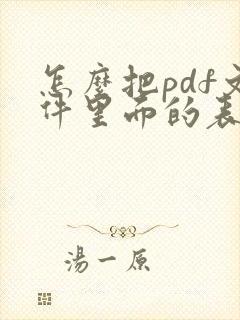 怎麼把pdf文
件里面的表
湯一原